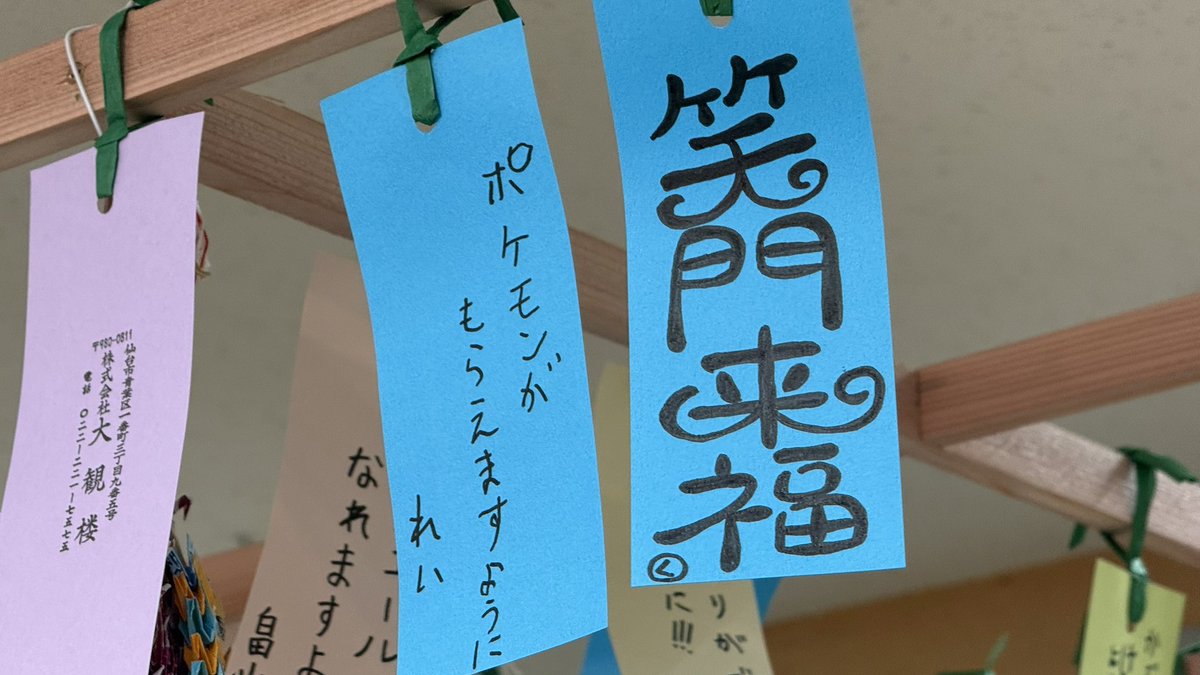 笑門来福
く
ポケモンが
もらえますように
れい
〒980-0811
仙台市青葉区一番町三丁目九番五号
株式会社大観楼
電話 〇二二-二二一-七五七五
なれますよ
ニール
畠
りが
に!!!